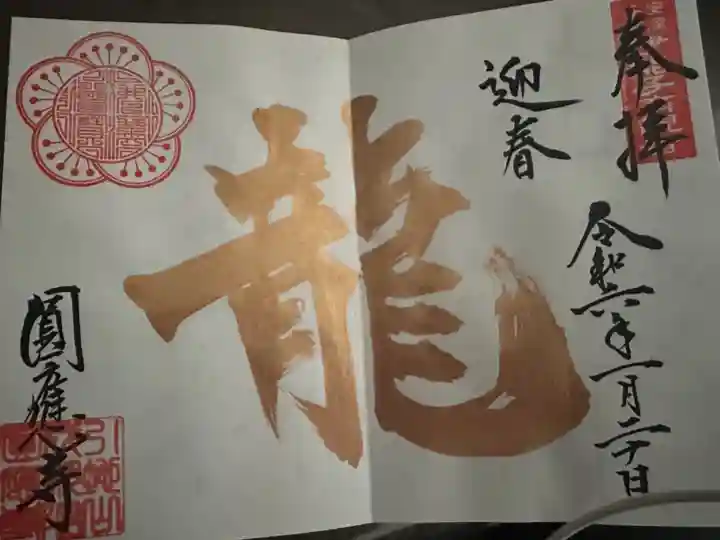 奉拝
令和六年一月二十日
迎春
龍
圓應寺